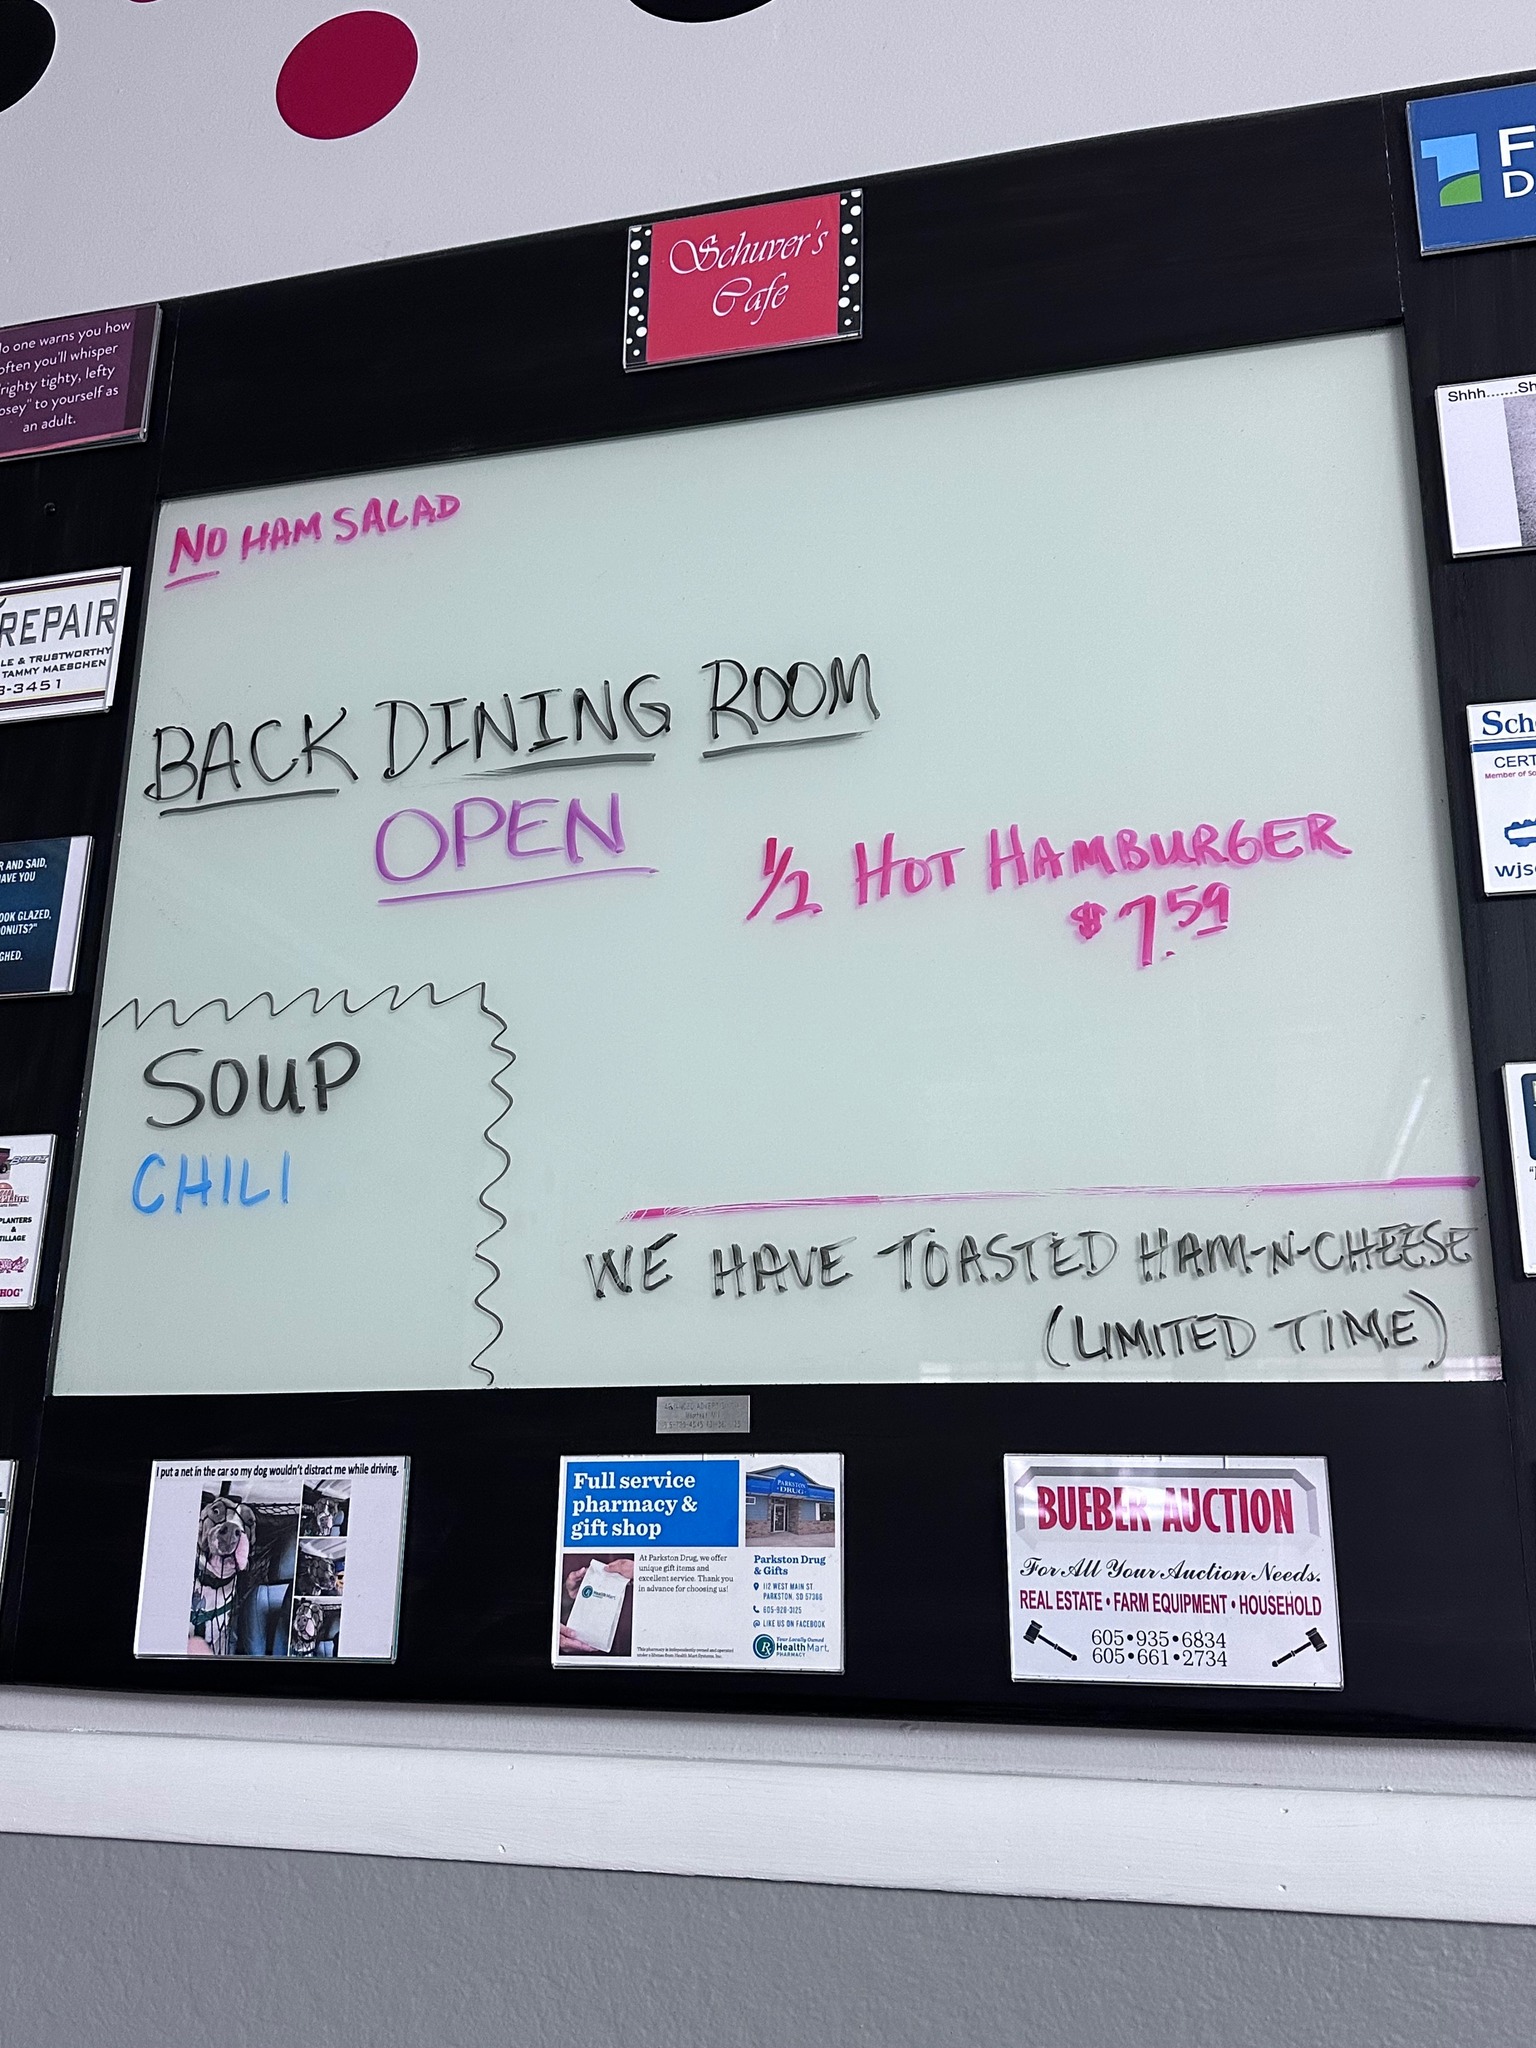 Schuver's
Cafe
F
D
o one warns you how
often you'll whisper
"righty tighty, lefty
osey" to yourself as
an adult.
Shhh.......Sh
NO HAM SALAD
REPAIR
LE & TRUSTWORTHY
TAMMY MAESCHEN
3-3451
BACK DINING ROOM
OPEN
Sch
CERT
Member of So
wjs
R AND SAID,
AVE YOU
OOK GLAZED,
ONUTS?"
GHED.
1/2 HOT HAMBURGER
$7.59
SOUP
CHILI
PLANTERS
&
TILLAGE
HOG
WE HAVE TOASTED HAM-N-CHEESE
(LIMITED TIME)
I put a net in the car so my dog wouldn't distract me while driving.
Full service
pharmacy &
gift shop
PARKSTON
DRUG
At Parkston Drug, we offer
unique gift items and
excellent service. Thank you
in advance for choosing us!
Health Mart
Parkston Drug
& Gifts
112 WEST MAIN ST.
PARKSTON, SD 57366
605-928-3125
LIKE US ON FACEBOOK
This pharmacy is independently owned and operated
under a license from Health Mart Systems, Inc.
Your Locally Owned
Health Mart.
PHARMACY
BUEBER AUCTION
For All Your Auction Needs.
REAL ESTATE • FARM EQUIPMENT • HOUSEHOLD
605•935•6834
605•661•2734